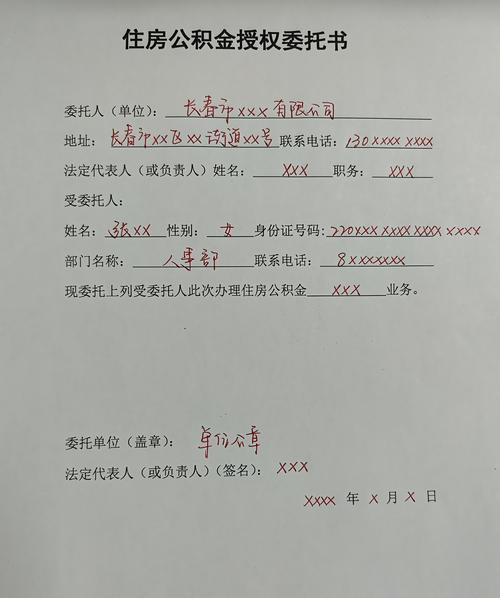 住房公积金授权委托书
委托人（单位）：长春市xxx有限公司
地址：长春市xx区xx街道xx号 联系电话：130xxxx xxxx
法定代表人（或负责人）姓名：xxx 职务：xxx
受委托人：
姓名：张xx 性别：女 身份证号码：220xxx xxxx xxxx xxxx
部门名称：人事部 联系电话：8xxxxxxx
现委托上列受委托人此次办理住房公积金 xxx 业务。
委托单位（盖章）：单位公章
法定代表人（或负责人）（签名）：xxx
xxxx 年 x 月 x 日